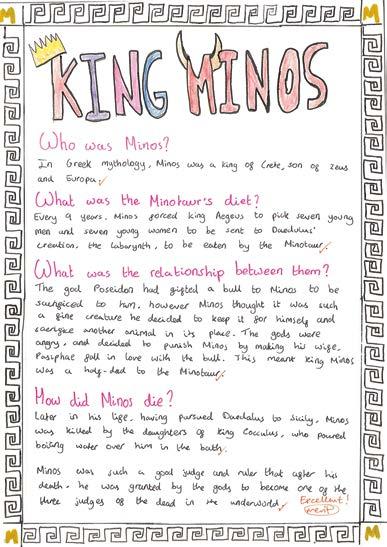 M M
KING MINOS
Who was Minos?
In Greek mythology, Minos was a king of Crete, son of Zeus
and Europa.
What was the Minotaur's diet?
Every 9 years, Minos forced king Aegeus to pick seven young
men and seven young women to be sent to Daedulus'
creation, the labarynth, to be eaten by the Minotaur.
What was the relationship between them?
The god Poseidon had gifted a bull to Minos to be
sacrificed to him, however Minos thought it was such
a fine creature he decided to keep it for himself and
sacrifice another animal in its place. The gods were
angry, and decided to punish Minos by making his wife,
Pasiphae fall in love with the bull. This meant King Minos
was a half-dad to the Minotaur.
How did Minos die?
Later in his life, having pursued Daedalus to Sicily, Minos
was killed by the daughters of King Cocculus, who poured
boiling water over him in the bath.
Minos was such a good judge and ruler that after his
death, he was granted by the gods to become one of the
three judges of the dead in the underworld.
Excellent!
merit
M M